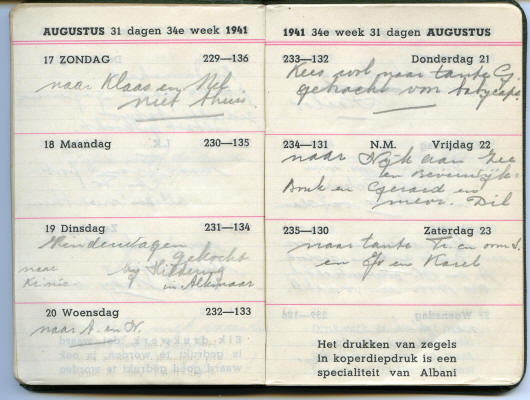 AUGUSTUS 31 dagen 34e week 1941
17 ZONDAG 229—136
naar Klaas en Nel
niet thuis.
18 Maandag 230—135
19 Dinsdag 231—134
Kinderwagen
gekocht
naar bij
Kinie in Alkmaar
20 Woensdag 232—133
naar A. en N.
1941 34e week 31 dagen AUGUSTUS
233—132 Donderdag 21
Kees wol naar tante G.
gebracht voor
234—131 N.M. Vrijdag 22
naar Wijk aan Zee
en Beverwijk:
Bruk en Gerard en
mevr. Dil
235—130 Zaterdag 23
naar tante Tr. en oom S.
en Jo en Karel
Het drukken van zegels
in koperdiepdruk is een
specialiteit van Albani